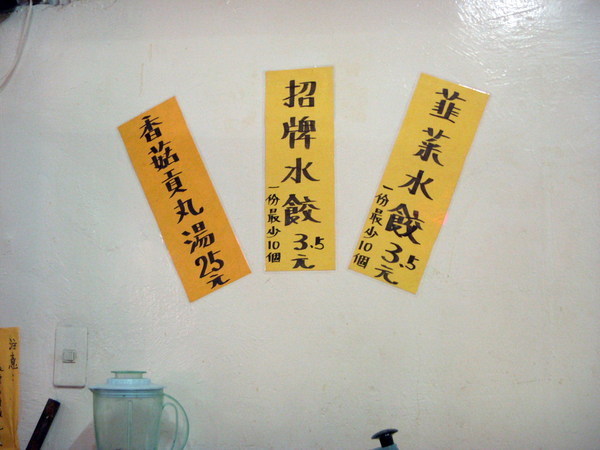 香菇貢丸湯25元
招牌水餃3.5元
一份最少10個
韮菜水餃3.5元
一份最少10個
注意